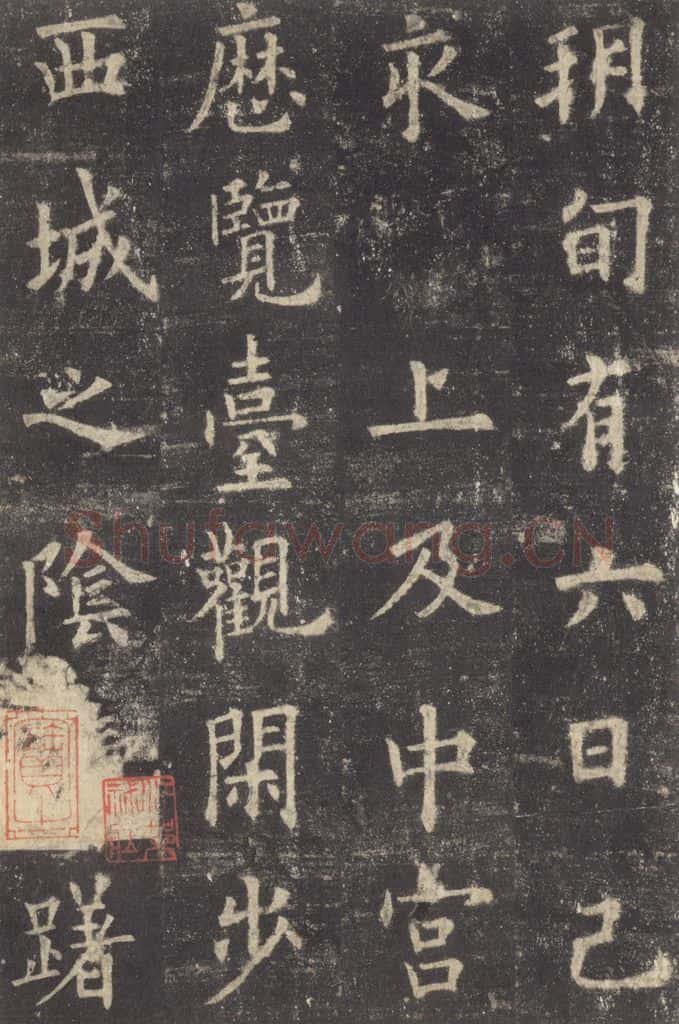 朔旬有六日己
亥上及中宮
歷覽臺觀閑步
西城之陰躇
Shufawang.CN